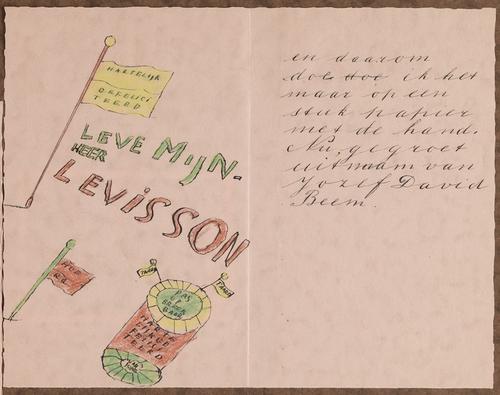 HARTELIJK
GEFELICI
TEERD
LEVE MIJN-
HEER
LEVISSON
HOE
RA
PAS
OP
en daarom
doe hoe ik het
maar op een
stuk papier
met de hand.
Nu, gegroet
uit naam van
Jozef David
Beem.